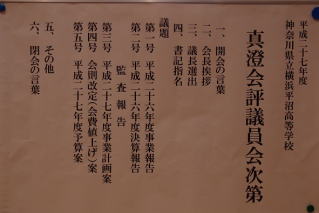 平成二十七年度
神奈川県立横浜平沼高等学校
真澄会評議員会次第
一、開会の言葉
二、会長挨拶
三、議長選出
四、書記指名
議題
第一号 平成二十六年度事業報告
第二号 平成二十六年度決算報告
監査報告
第三号 平成二十七年度事業計画案
第四号 会則改定(会費値上げ)案
第五号 平成二十七年度予算案
五、その他
六、閉会の言葉